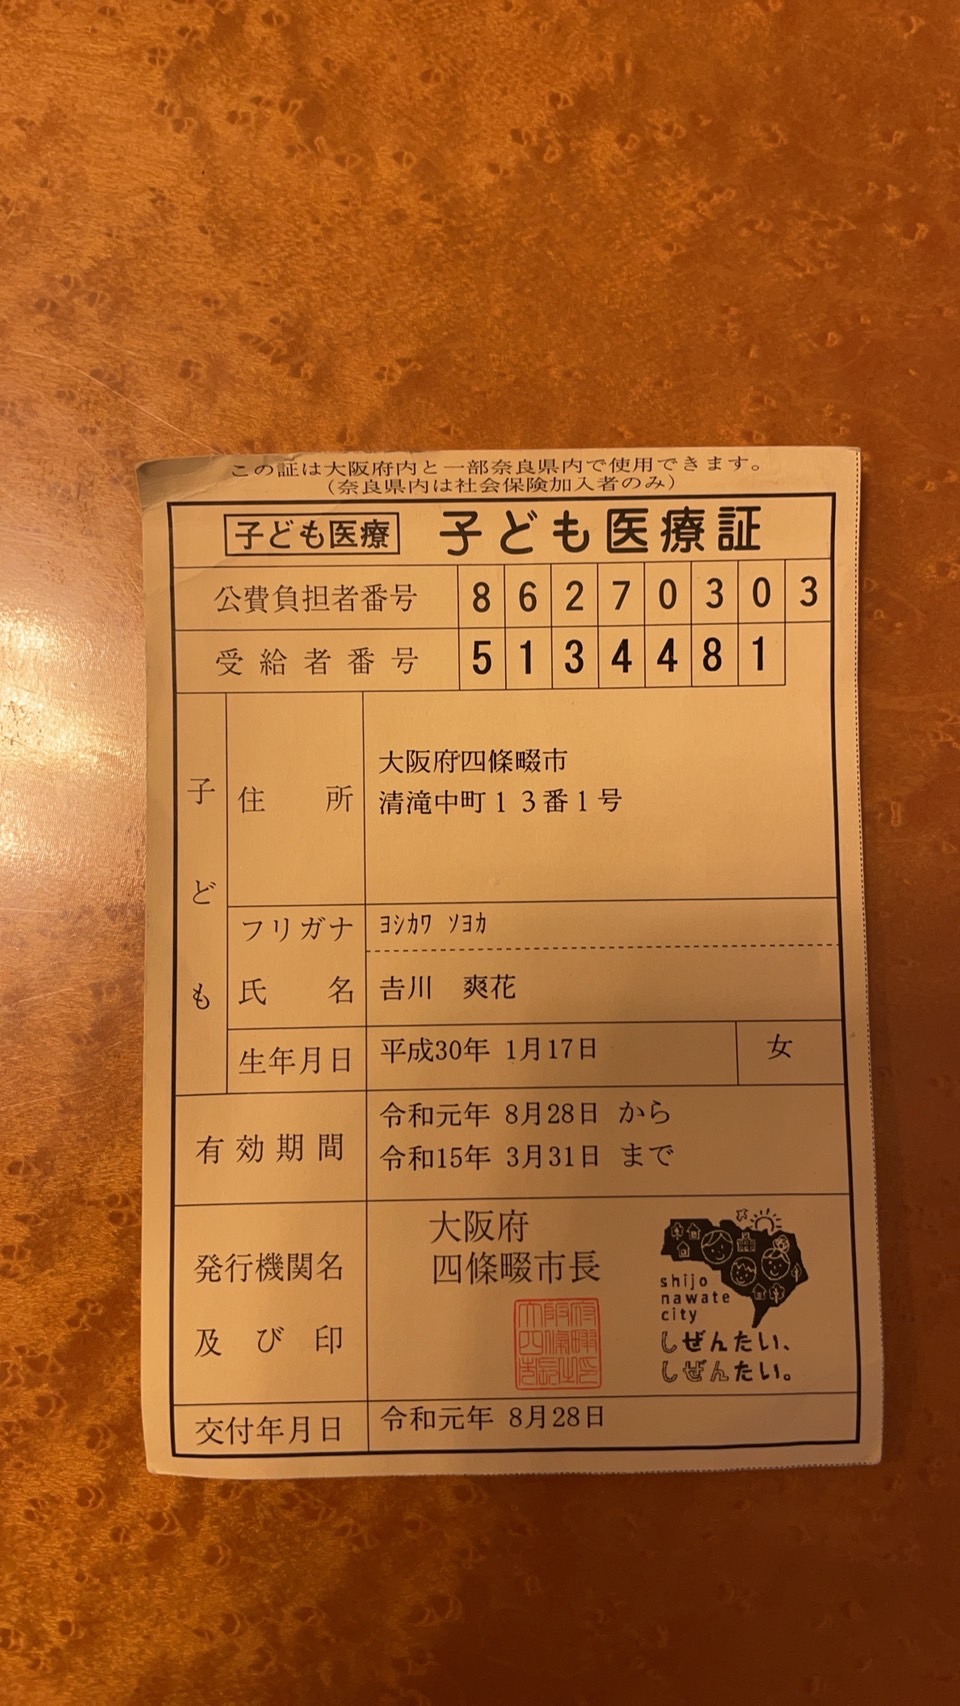 この証は大阪府内と一部奈良県内で使用できます。
（奈良県内は社会保険加入者のみ）
子ども医療 子ども医療証
公費負担者番号 8 6 2 7 0 3 0 3
受給者番号 5 1 3 4 4 8 1
子ども
住所 大阪府四條畷市
清滝中町１３番１号
フリガナ ﾖｼｶﾜ ｿﾖｶ
氏名 𠮷川 爽花
生年月日 平成30年 1月17日 女
有効期間 令和元年 8月28日 から
令和15年 3月31日 まで
発行機関名
及び印
大阪府
四條畷市長
大阪府四條畷市長之印
shijo
nawate
city
しぜんたい、
しぜんたい。
交付年月日 令和元年 8月28日